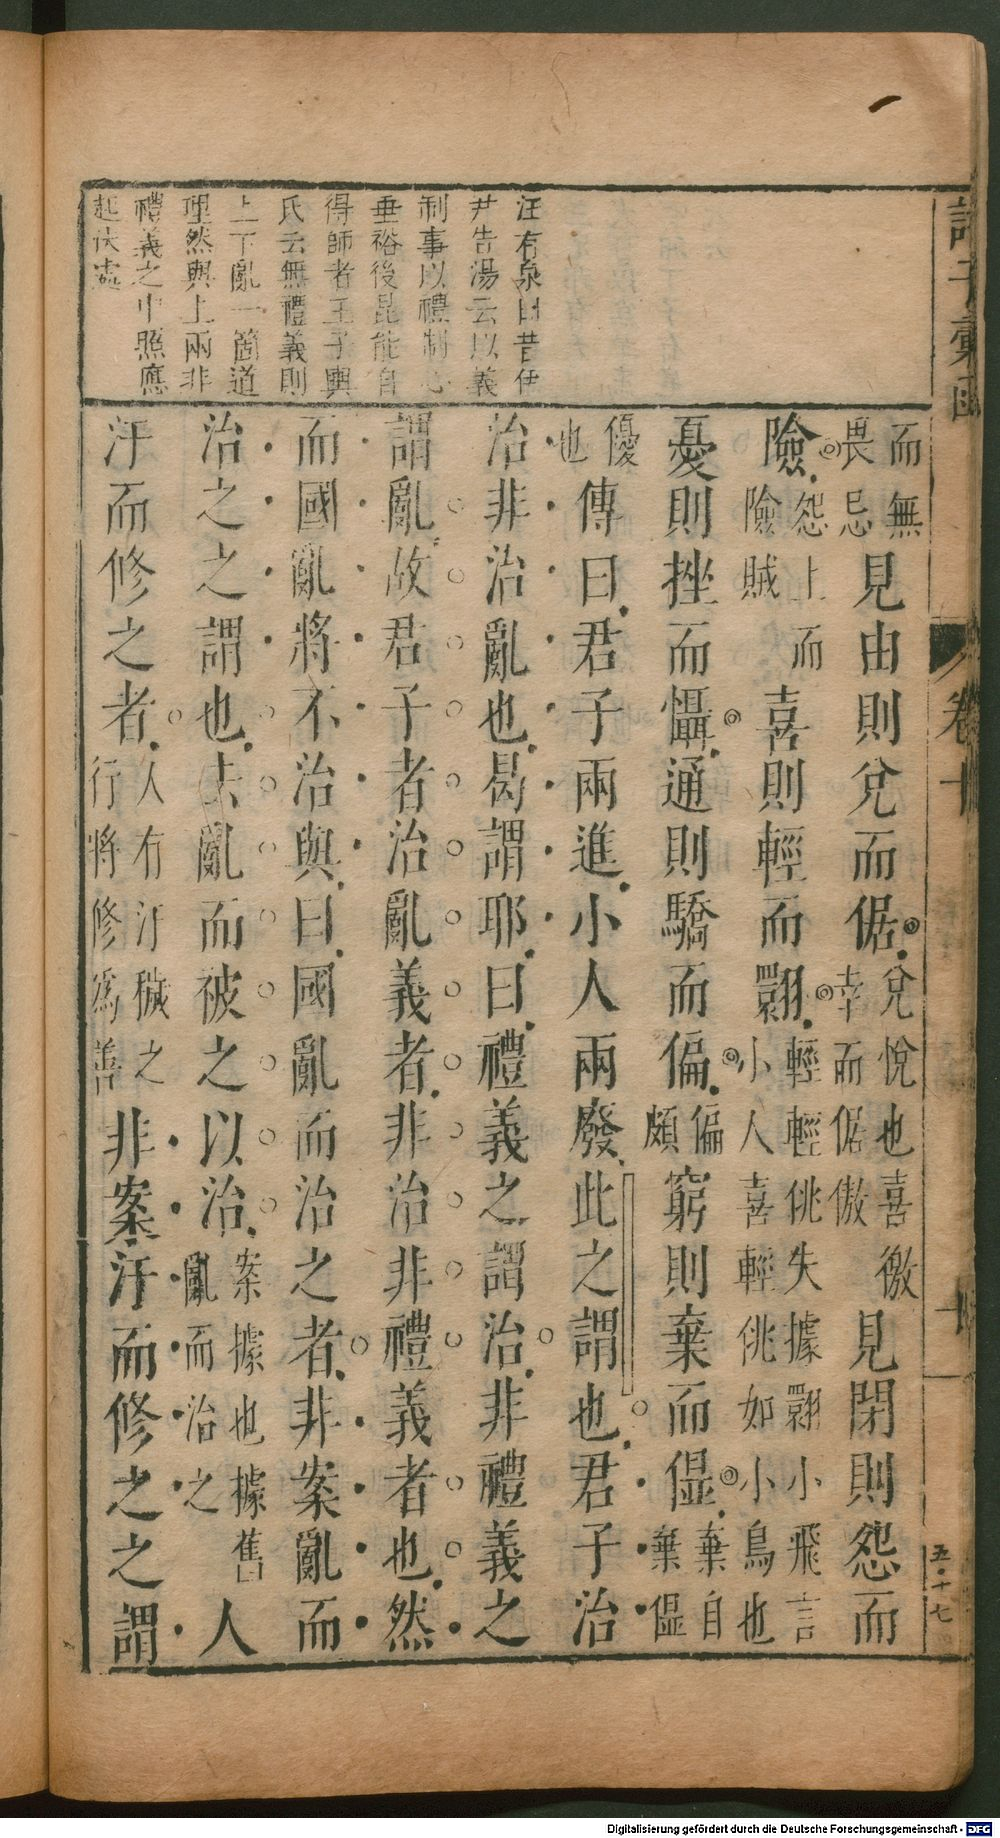 諸子彙函
卷十
十
五十七
汪有泉曰昔伊
尹告湯云以義
制事以禮制心
垂裕後昆能自
得師者王子輿
氏云無禮義則
上下亂一箇道
理然與上兩非
禮義之中照應
起伏處
而無
畏忌
見由則兌而倨
兌悅也喜徼
幸而倨傲
見閉則怨而
險
怨上而
險賊
喜則輕而翾
輕輕佻失據翾小飛言
小人喜輕佻如小鳥也
憂則挫而懾通則驕而偏
偏
頗
窮則棄而儑
棄自
棄儑
優
也
傳曰君子兩進小人兩廢此之謂也君子治
治非治亂也曷謂耶曰禮義之謂治非禮義之
謂亂故君子者治亂義者非治非禮義者也然
而國亂將不治與曰國亂而治之者非案亂而
治之之謂也去亂而被之以治
案據也據舊
亂而治之
人
汙而修之者
人有汙穢之
行將修為善
非案汙而修之之謂
Digitalisierung gefördert durch die Deutsche Forschungsgemeinschaft - DFG